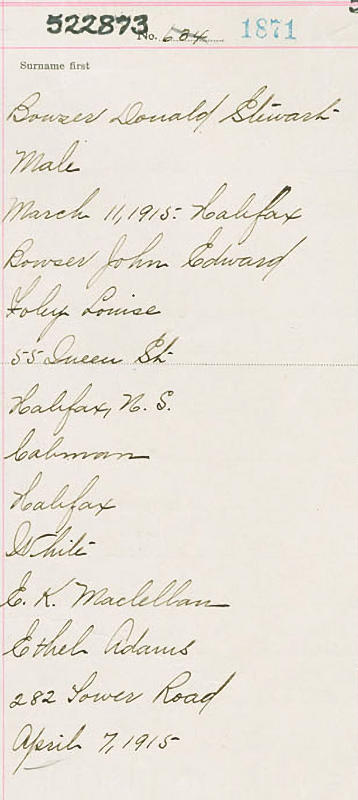 522873 No. 634 1871
Surname first
Bowser Donald Stewart
Male
March 11, 1915. Halifax
Bowser John Edward
Foley Louise
55 Queen St.
Halifax, N. S.
Cabman
Halifax
White
E. K. Maclellan
Ethel Adams
282 Tower Road
April 7, 1915